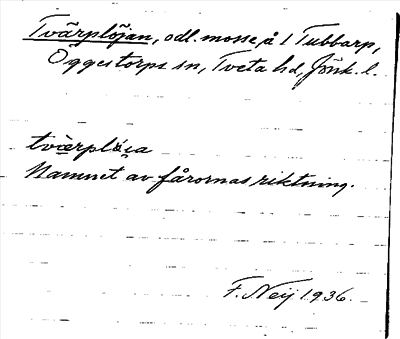 Tvärplöjan, odl. mosse å 1 Tubbarp,
Öggestorps sn, Tveta hd, Jönk. l.
Namnet av fårornas riktning.
F. Neij 1936.